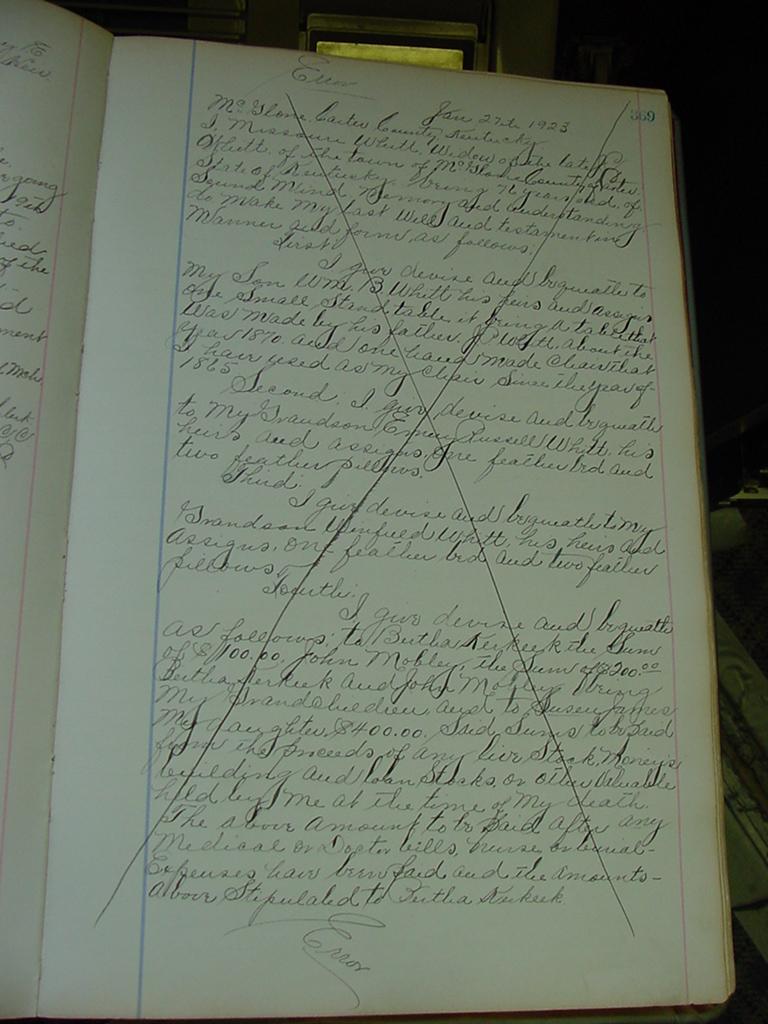 Error
369
Jan 27th 1923
McGlone, Carter County, Kentucky
I, Missouri Whitt, Widow of the late J B
Whitt, of the town of McGlone County of Carter
State of Kentucky, being 76 years old, of
Sound Mind Memory and understanding
do make My last Will and testament in
Manner and form, as follows:
First:
I give devise and bequeath to
My Son Wm. B Whitt his heirs and assigns
one Small Stand table, it being a table that
Was made by his father, J B Whitt, about the
year 1870. and one hand made Chair that
I have used as My Chair Since the year of-
1865
Second. I give, devise and bequeath
to My Grandson Emery Russell Whitt, his
heirs and assigns, One feather bed and
two feather pillows.
Third:
I give devise and bequeath to my
Grandson Winfield Whitt, his heirs and
assigns, one feather bed and two feather
pillows
Fourth:
I give devise and bequeath
as follows; to Bertha Kerkeek the Sum
of $100.00, John Mobley, the Sum of $200.00
Bertha Kerkeek and John Mobley being
My Grandchildren, and to Susen James
My daughter $400.00. Said Sums to be paid
from the proceeds of any live Stock, Moneys
building and loan Stocks, or other Valuable
held by Me at the time of My death.
The above amount to be paid after any
Medical or Doctor bills, nurse or burial-
Expenses have been paid and the amounts-
above Stipulated to Bertha Kerkeek
Error
going
19th
to.
of the
d
ment